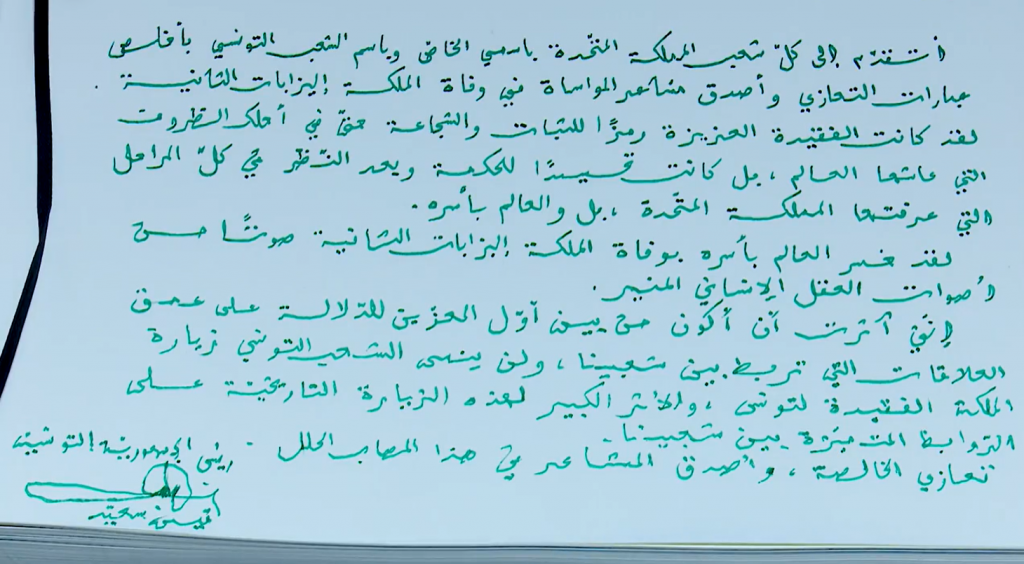 أتقدّم إلى كلّ شعب المملكة المتّحدة باسمي الخاصّ وباسم الشعب التونسي بأخلص
عبارات التعازي وأصدق مشاعر المواساة في وفاة الملكة إليزابات الثانية .
لقد كانت الفقيدة العزيزة رمزًا للثبات والشجاعة حتّى في أحلك الظروف
التي عاشها العالم ، بل كانت تجسيدًا للحكمة وبعد النّظر في كلّ المراحل
التي عرفتها المملكة المتّحدة ، بل والعالم بأسره .
لقد خسر العالم بأسره بوفاة الملكة إليزابات الثانية صوتًا من
أصوات العقل الإنساني المنير .
إنّني آثرت أن أكون من بين أوّل المعزّين للدّلالة على عمق
العلاقات التي تربط بين شعبينا ، ولن ينسى الشعب التونسي زيارة
الملكة الفقيدة لتونس ، والأثر الكبير لهذه الزيارة التاريخيّة على
الروابط المتميّزة بين شعبينا .
تعازي الخالصة ، وأصدق المشاعر في هذا المصاب الجلل .
رئيس الجمهوريّة التونسيّة
قيس سعيّد